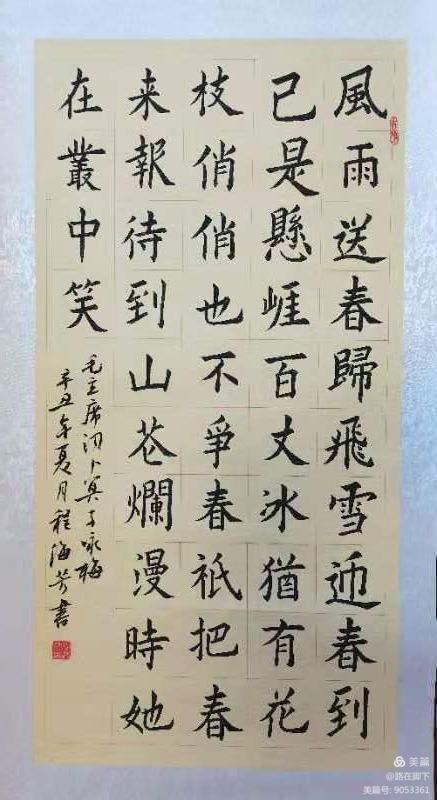 風雨送春歸飛雪迎春到
已是懸崖百丈冰猶有花
枝俏俏也不爭春祇把春
来報待到山花爛漫時她
在叢中笑
毛主席词卜算子咏梅
辛丑年夏月程海芳書
美篇
@路在脚下
美篇号: 9053361